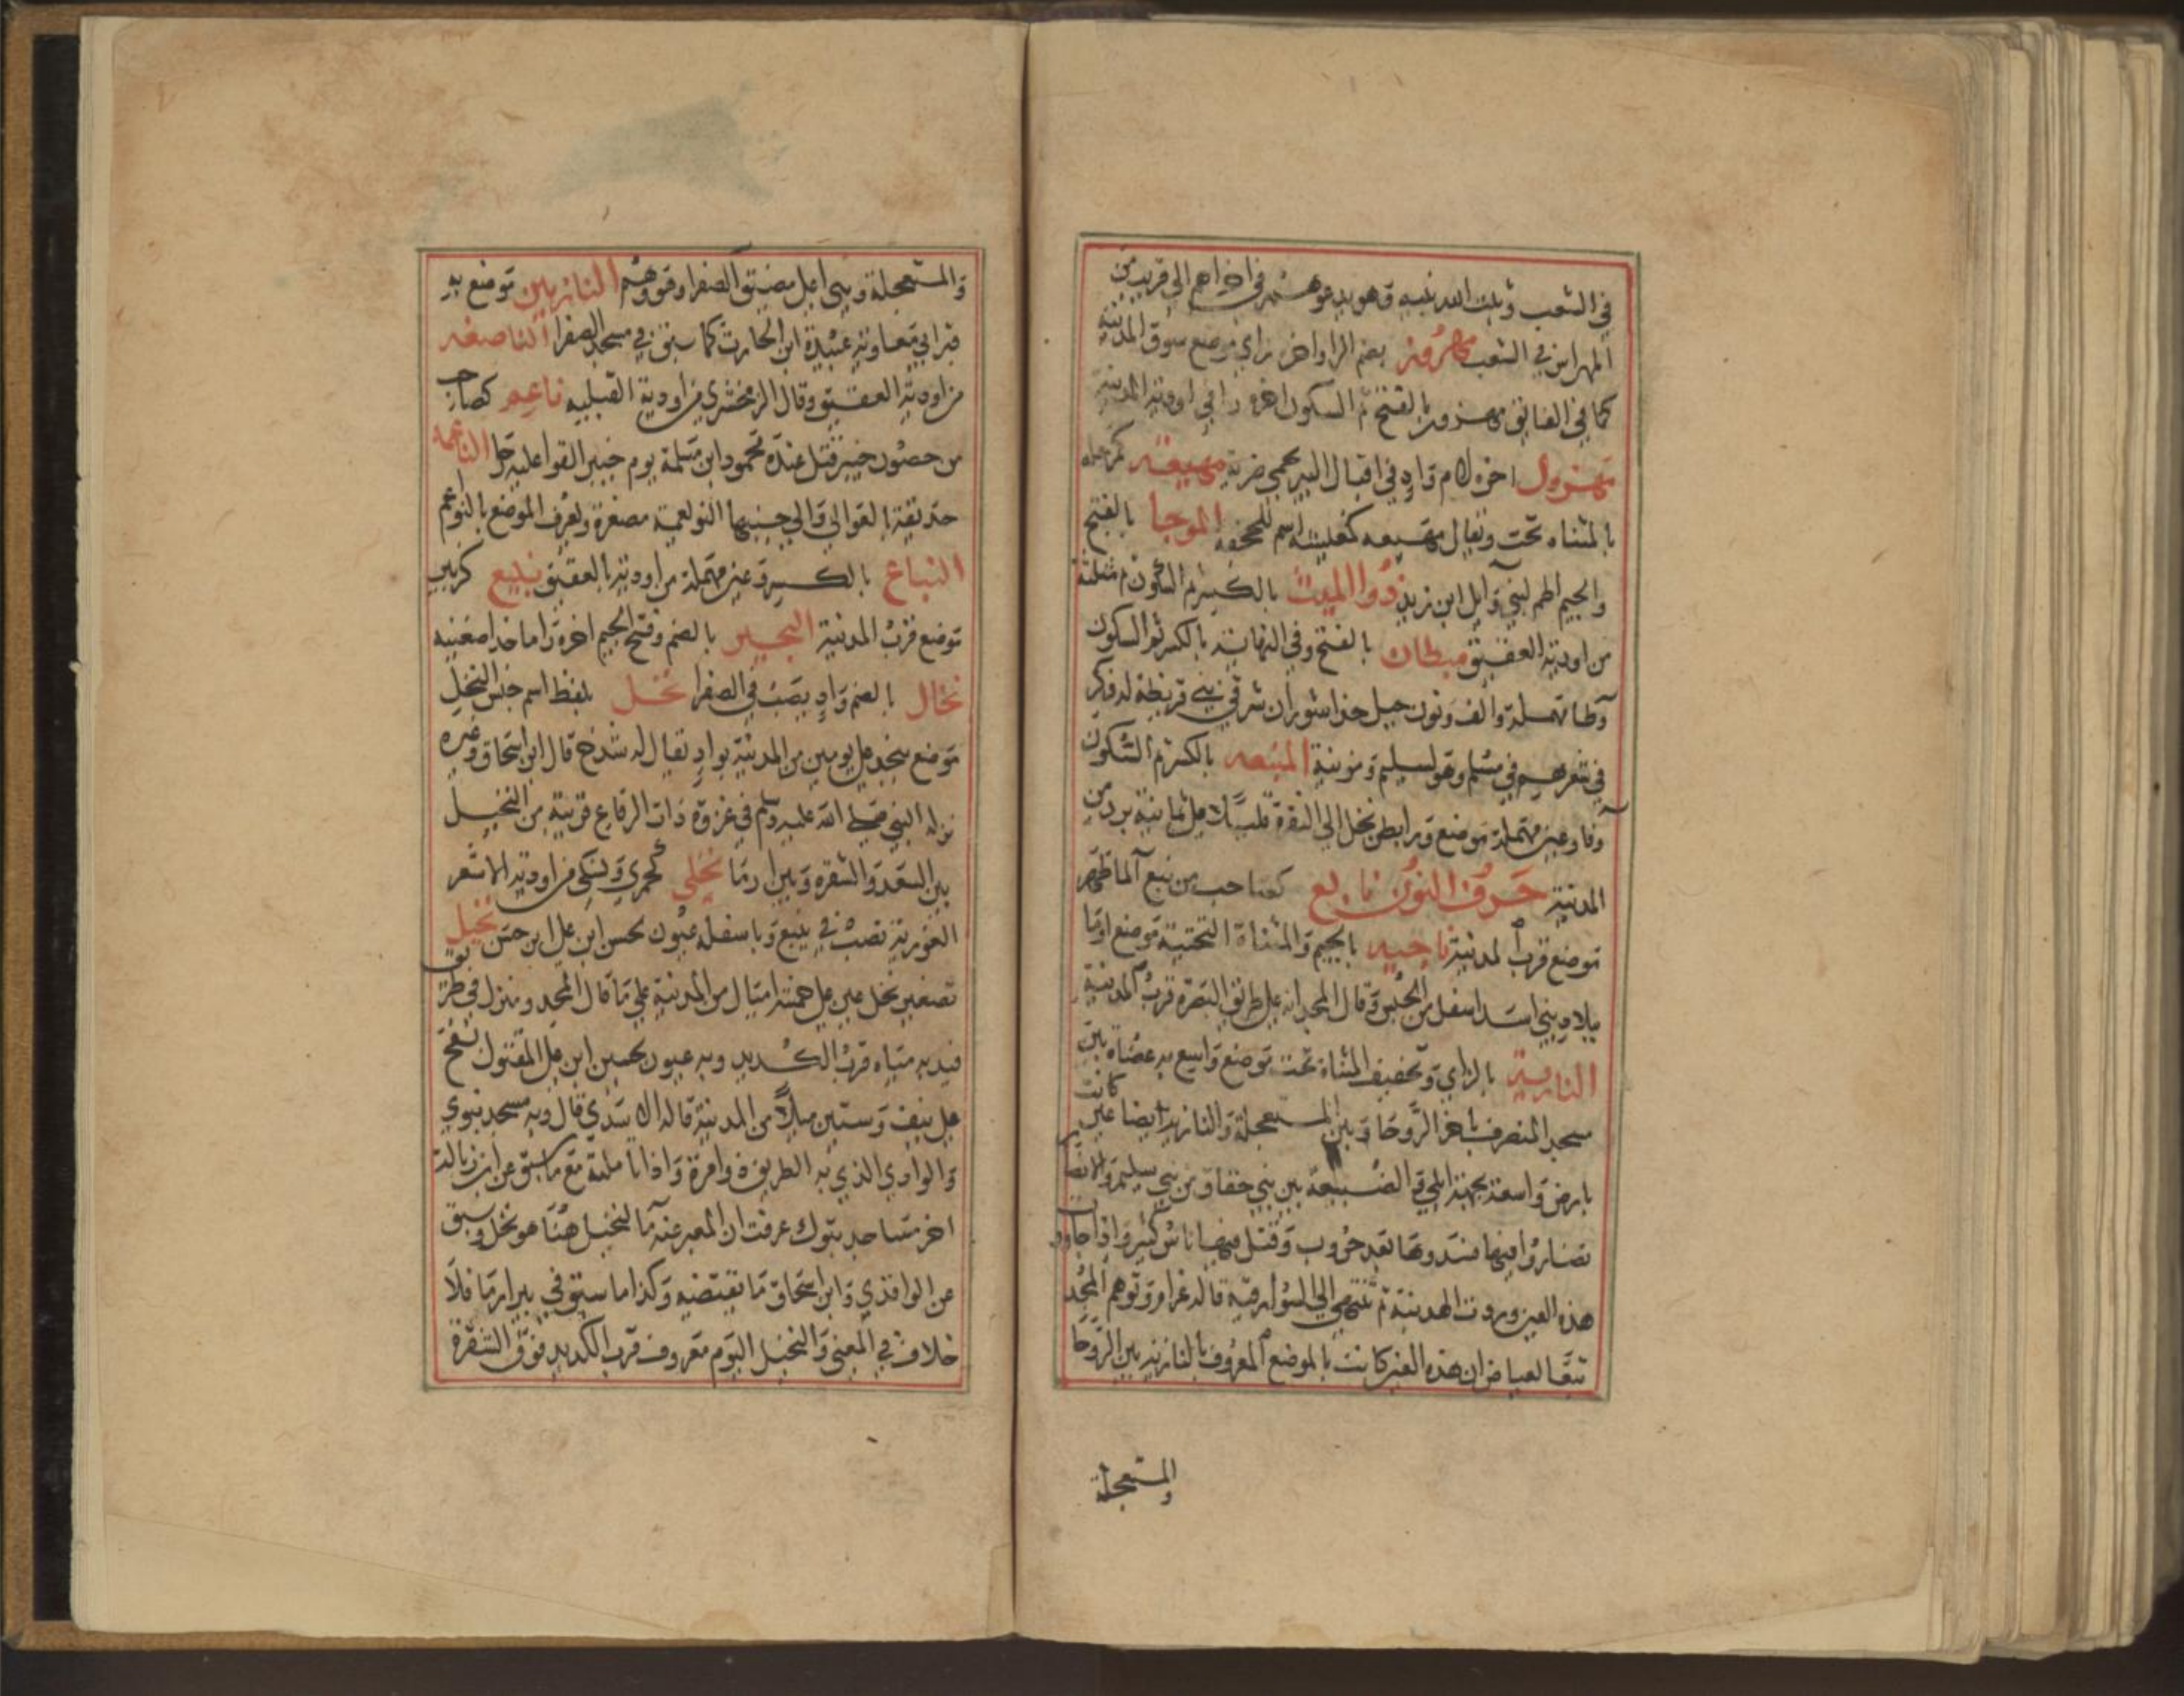 في الشعب وثبت الله نبيه وهو يدعوهم في اخراهم الى قريب من
المهراس في الشعب مهروز بضم الرا واخره زاي موضع سوق المدينة
كما في الفايق مهزور بالفتح ثم السكون اخره را في اودية المدينة
مهزول اخره لام واد في اقبال النير بحمى ضرية مهيعة كمرحلة
بالمثناه تحت ويقال مهيعه كمعيشه اسم للجحفه الموجا بالفتح
والجيم اطم لبني وايل ابن زيد ذوا الميث بالكسر ثم السكون ثم مثلثة
من اودية العقيق ميطان بالفتح وفي النهاية بالكسر ثم السكون
وطا مهملة والف ونون جبل حذا شوران شرقي بني قريظة له ذكر
في شعرهم في مسلم وهو لسليم ومزينة الميثعه بالكسر ثم السكون
وفا وعين مهملة موضع ورا بطن نخل الى النقرة قليلا على ثمانية برد من
المدينة حرف النون نابع كصاحب من نبع الما ظهر
موضع قرب المدينة ناجيه بالجيم والمثناة التحتية موضع او ما
ببلاد بني اسد اسفل من الحبس وقال المجد انه على طريق البصرة قرب المدينة
النازية بالزاي وتخفيف المثناة تحت موضع واسع به عضاه بين
مسجد المنصرف باخر الروحا وبين المستعجلة والنازية ايضا عين كانت
بارض واسعة بجهة ابلي في الضبيعة بين بني خفاف من بني سليم والانصار
تضاروا فيها فسدوها بعد حروب وقتل فيها ناس كثير واذا جاوزت
هذه العين وردت الهدبية ثم تنتهي الى السوارقية قاله عرام وتوهم المجد
تبعا لعياض ان هذه العين كانت بالموضع المعروف بالنازية بين الروحا
والمستعجلة
والمستعجلة وبني على مضيق الصفرا وهو وهم النازيين موضع به
قبر ابي معاوية عبيدة ابن الحارث كما سبق في مسجد الصفرا الناصفه
من اودية العقيق وقال الزمخشري من اودية القبلية ناعم كصاحب
من حصون خيبر قتل عنده محمود ابن مسلمة يوم خيبر القوا عليه رحا الناعمه
حديقة بالعوالي والي جنبها النويعمة مصغرة ويعرف الموضع بالنواعم
النباع بالكسر وعين مهملة من اودية العقيق نبيع كزبير
موضع قرب المدينة النجير بالضم وفتح الجيم اخره را ما حذا صفينه
نخال بالضم واد يصب في الصفرا نخل بلفظ اسم جنس النخل
موضع بنجد على يومين من المدينة بواد يقال له شدخ قال ابن اسحاق وغيره
نزله النبي صلى الله عليه وسلم في غزوة ذات الرقاع قرية من النخيل
بين السعد والشقره وبين ارما نخلي كجمزي ونسكي من اودية الاشعر
الغورية تصب في ينبع وباسفله عيون لحسن ابن علي ابن حسن نخيل
تصغير نخل عين على خمسة اميال من المدينة على ما قال المجد ومنزل في طريق
فيد به مياه قرب الكديد وبه عيون لحسين ابن علي المقتول بفخ
على نيف وستين ميلا من المدينة قاله الاسدي قال وبه مسجد نبوي
والوادي الذي به الطريق ذوامرة واذا تاملته مع ما سبق عن ابن زبالة
اخر مساجد تبوك عرفت ان المعبر عنه بالنخيل هنا هو نخل وسبق
عن الواقدي وابن اسحاق ما يقتضيه وكذا ما سبق في بير ارما فلا
خلاف في المعنى والنخيل اليوم معروف قرب الكديد فوق الشقرة